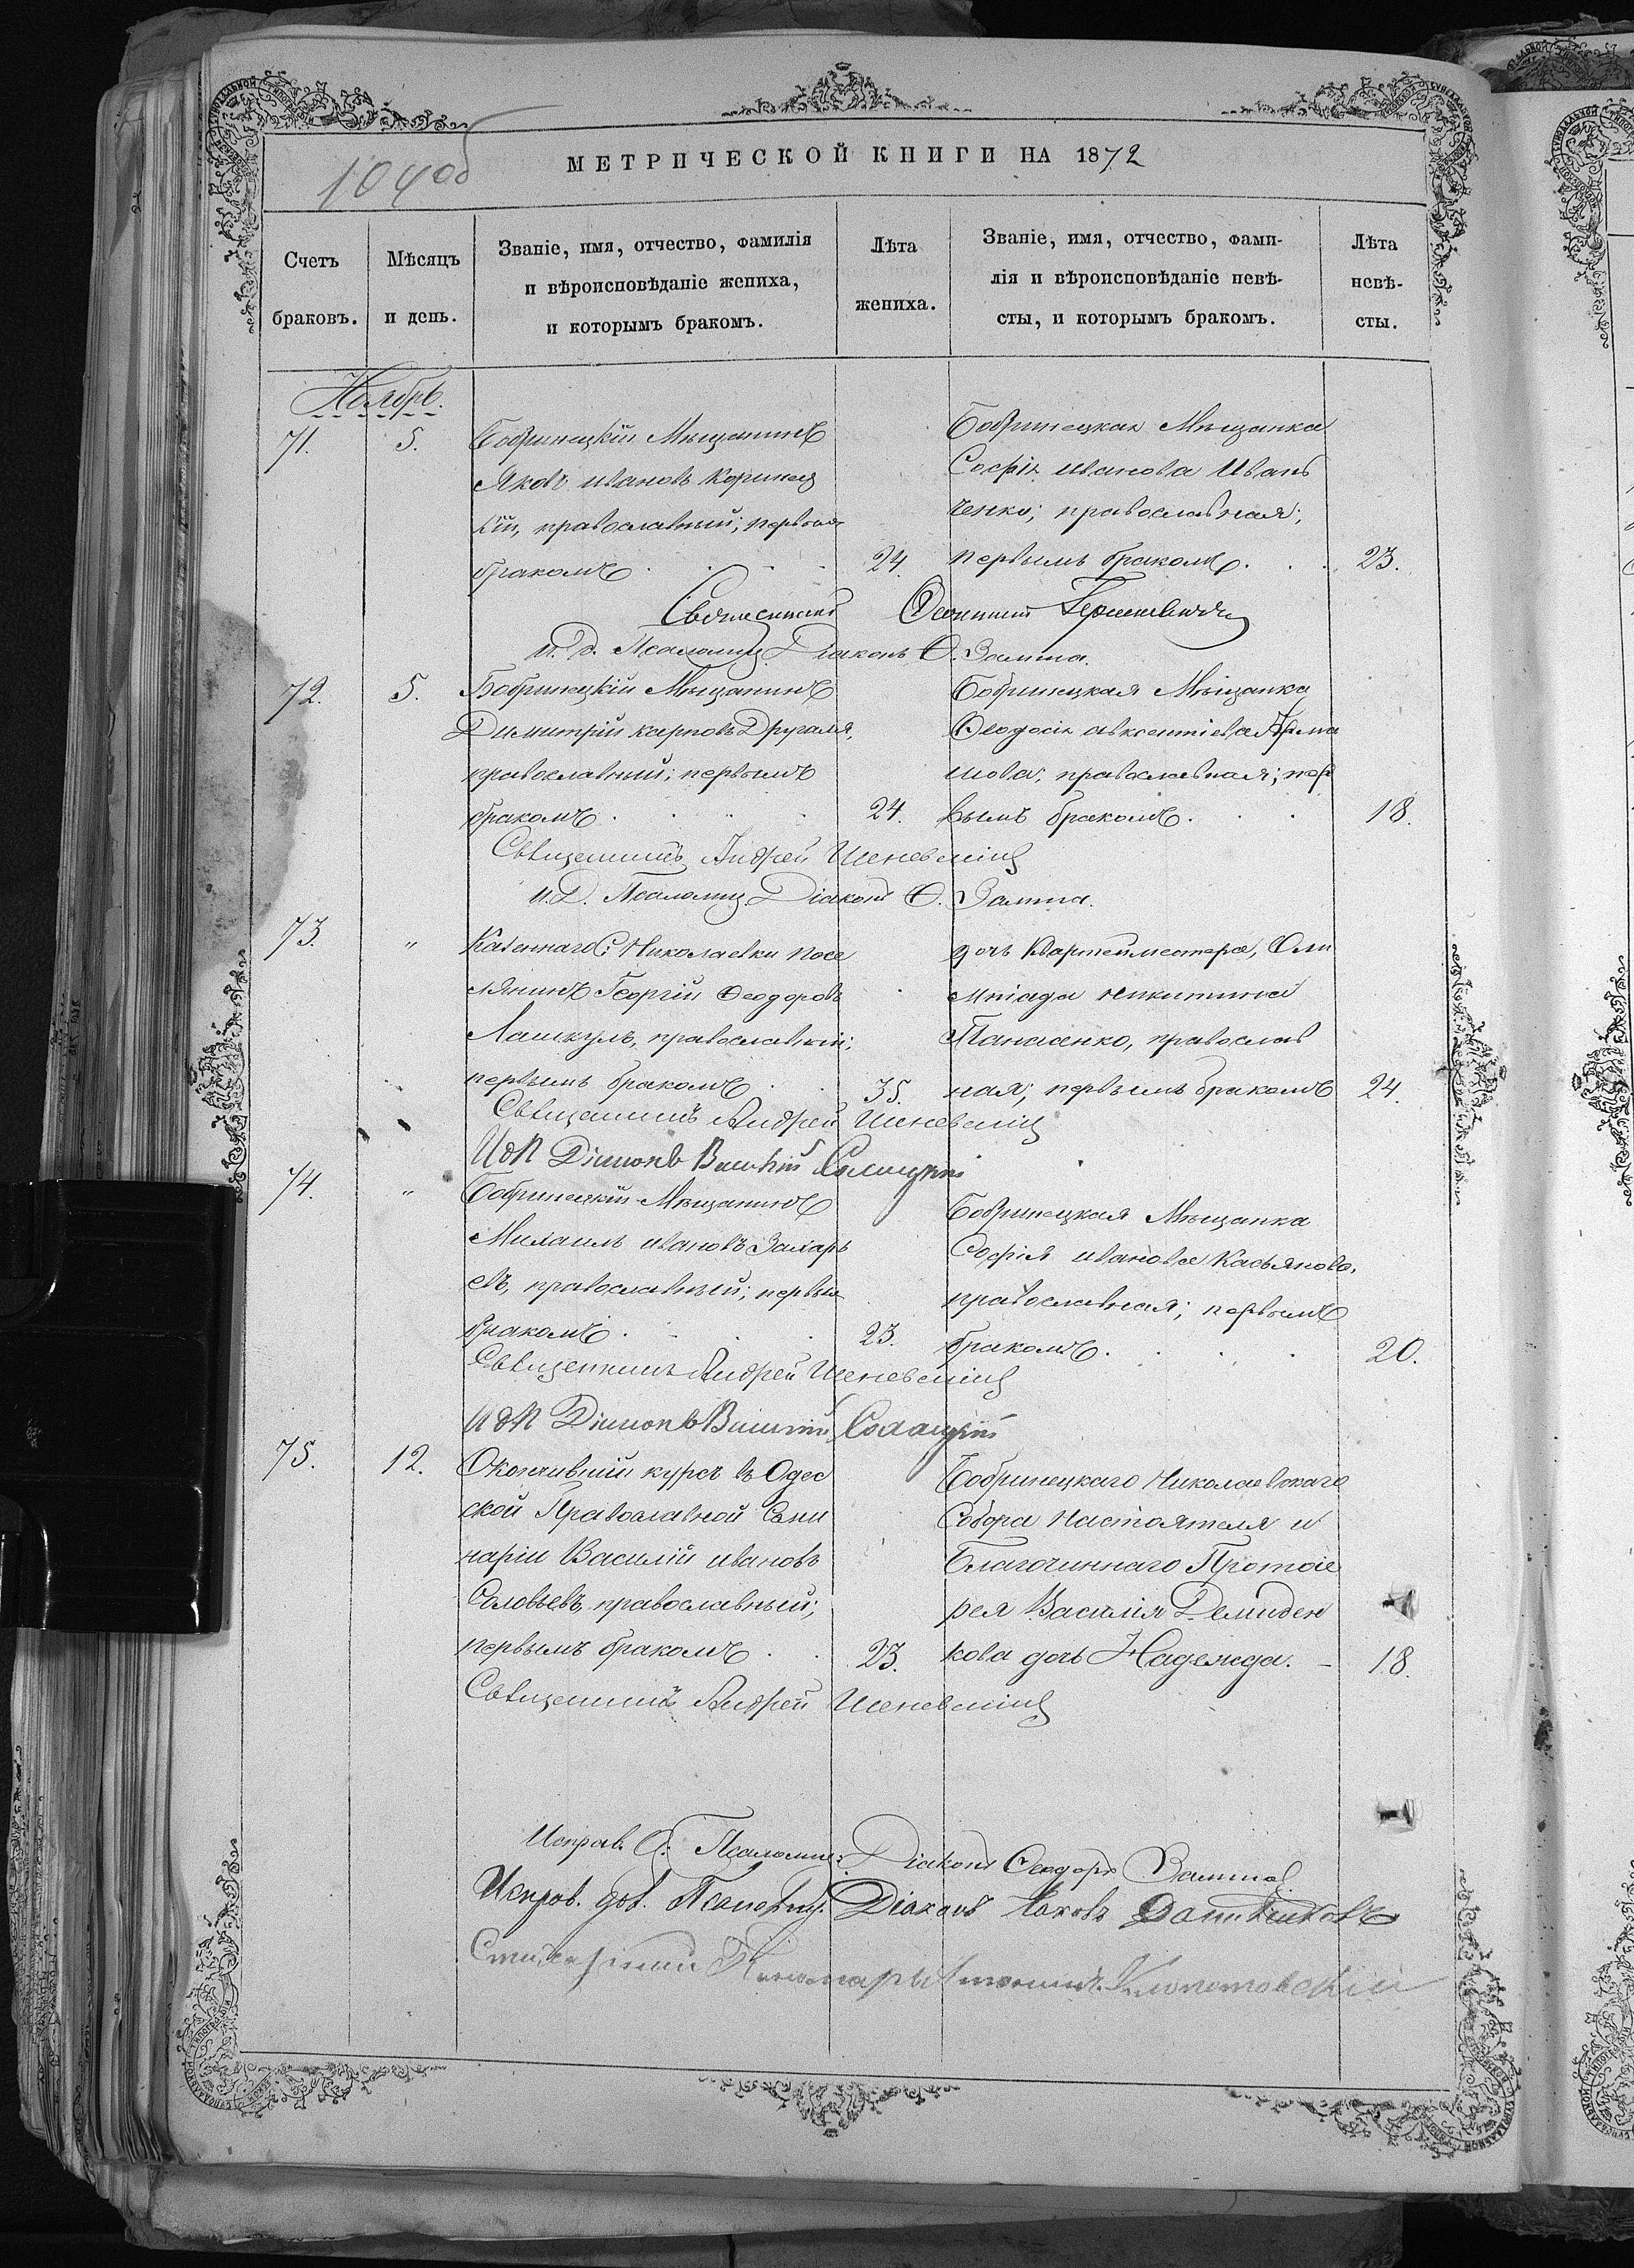 МЕТРИЧЕСКОЙ КНИГИ НА 1872
Счетъ браковъ.
Мѣсяцъ и день.
Званіе, имя, отчество, фамилія
и вѣроисповѣданіе жениха,
и которымъ бракомъ.
Лѣта жениха.
Званіе, имя, отчество, фами-
лія и вѣроисповѣданіе невѣ-
сты, и которымъ бракомъ.
Лѣта невѣ-
сты.
Ноябрь.
71. 5.
Бобринецкій Мѣщанинъ
Яковъ ивановъ Коринец
кій, православный; первымъ
бракомъ 24.
Бобринецкая Мѣщанка
Софія иванова Иван
ченко; православная;
первымъ бракомъ. 23.
Священникъ
и. д. Псаломщ. Діаконъ Ѳ.
72. 5.
Бобринецкій Мѣщанинъ
Димитрій карповъ Другаля,
православный; первымъ
бракомъ 24.
Бобринецкая Мѣщанка
Ѳеодосія авксентіева
православная; пер
вымъ бракомъ. 18.
Священникъ Андрей
И. Д. Псаломщ. Діаконъ Ѳ.
73. "
Казеннаго С: Николаевки посе
лянинъ Георгій Ѳеодоровъ
Лашкулъ, православный;
первымъ бракомъ 35.
дочь Квартейместера, Оли
мпіада никитина
Панасенко, православ
ная; первымъ бракомъ 24.
Священникъ Андрей
Діаконъ
74. "
Бобринецкій Мѣщанинъ
Михаилъ ивановъ Захарь
евъ, православный; первы
бракомъ 23.
Бобринецкая Мѣщанка
Софія иванова Касьянова,
православная; первымъ
бракомъ. 20.
Священникъ Андрей
Діаконъ
75. 12.
Окончившій курсъ въ Одес
ской Православной Семи
наріи Василій ивановъ
Соловьевъ, православный;
первымъ бракомъ 23.
Бобринецкаго Николаевскаго
Собора Настоятеля и
Благочиннаго Протоіе
рея Василія Демиден
кова дочь Надежда. 18.
Священникъ Андрей
Исправ. Псаломщ: Діаконъ Ѳеодоръ
Исправ. дол. Псаломщ. Діаконъ Іаковъ
Клопотовскій